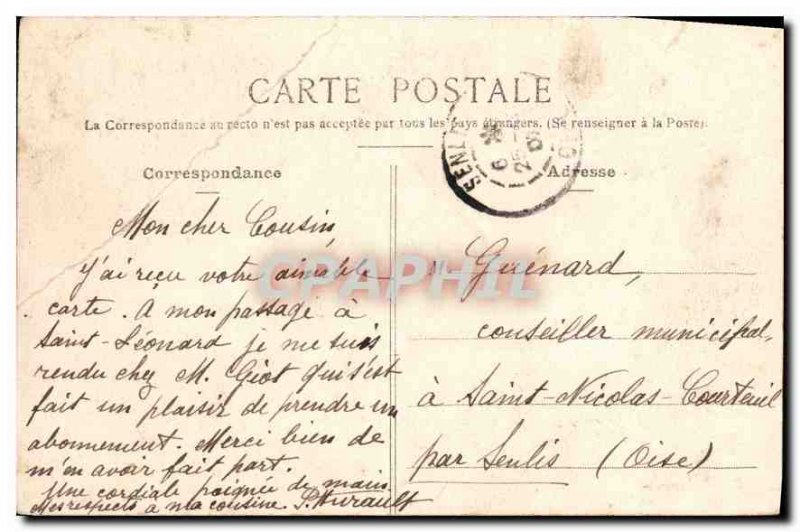 CARTE POSTALE
La Correspondance au recto n'est pas acceptée par tous les pays étrangers. (Se renseigner à la Poste).
Correspondance
Mon cher Cousin,
J'ai reçu votre aimable
carte. A mon passage à
Saint-Léonard je me suis
rendu chez M. Giot qui s'est
fait un plaisir de prendre un
abonnement. Merci bien de
m'en avoir fait part.
Une cordiale poignée de main
Mes respects à ma cousine. P. Hurault
Adresse
M Guénard,
conseiller municipal,
à Saint-Nicolas-Courteuil
par Senlis (Oise)
SENL
6
25
CPAPHIL